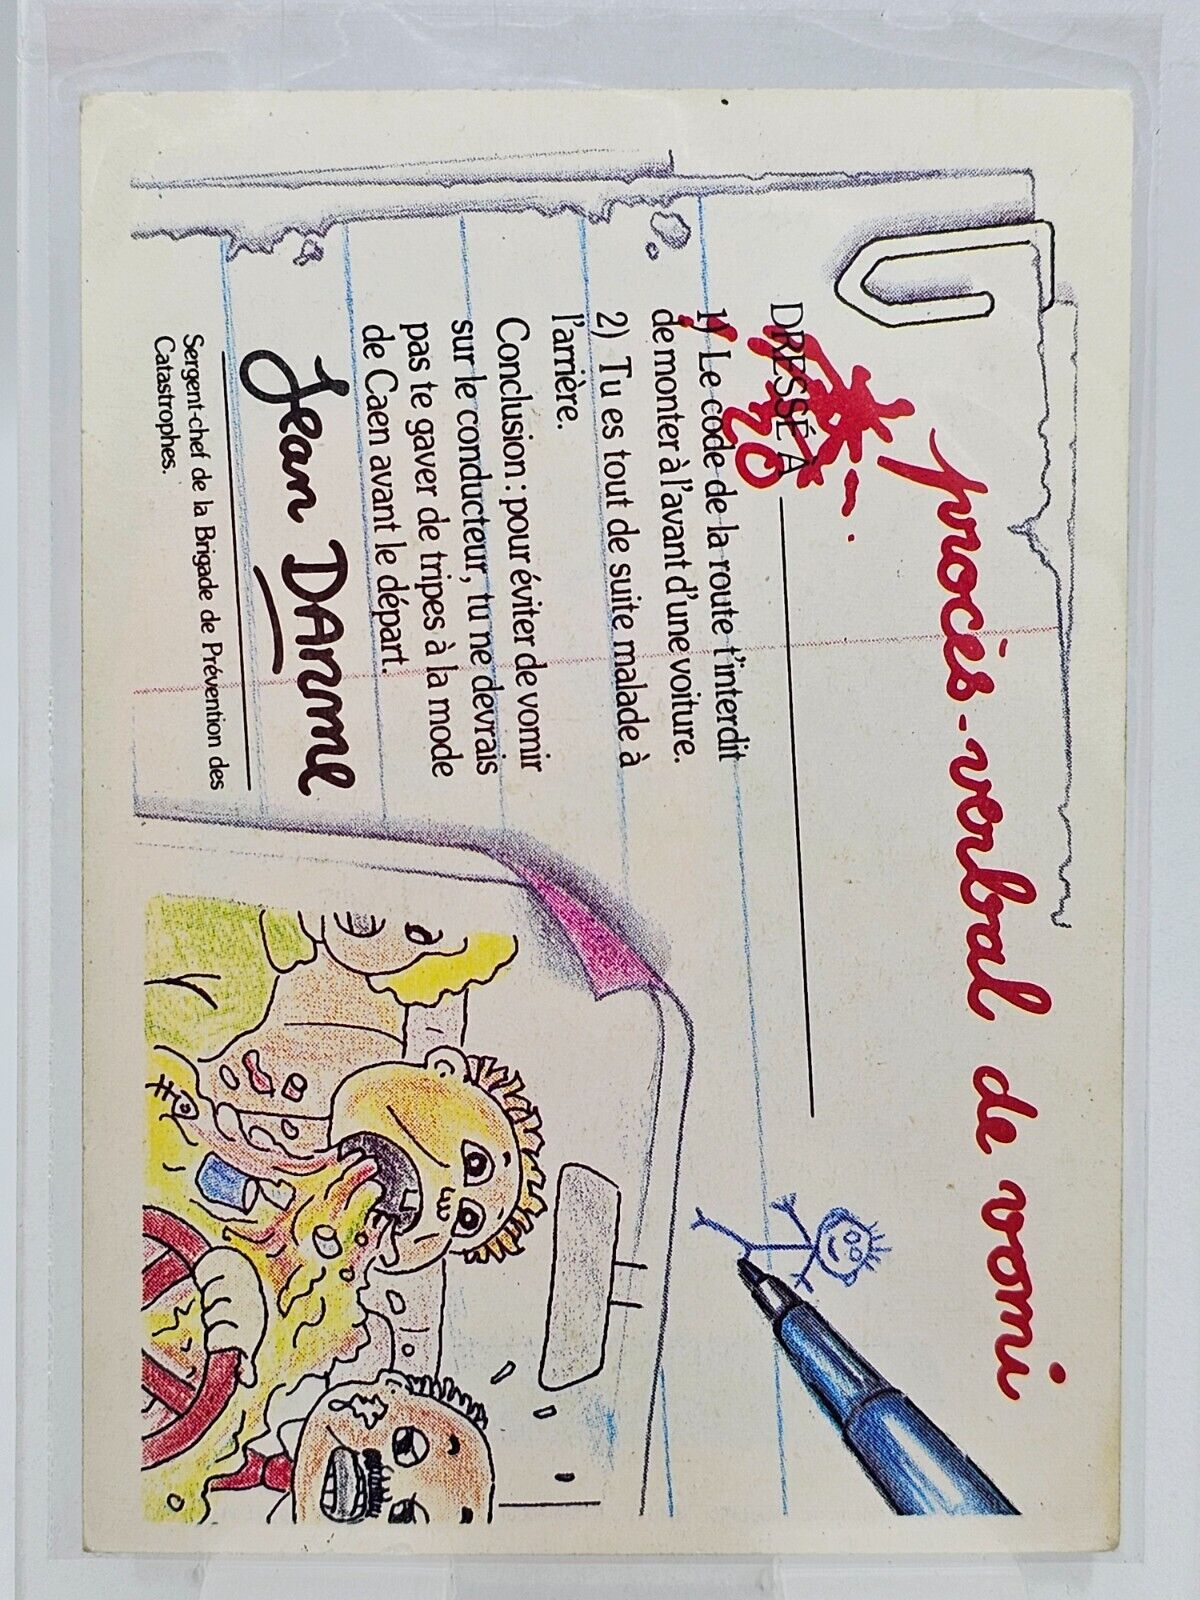 procès-verbal de vomi
DRESSÉ À
1) Le code de la route t'interdit
de monter à l'avant d'une voiture.
2) Tu es tout de suite malade à
l'arrière.
Conclusion : pour éviter de vomir
sur le conducteur, tu ne devrais
pas te gaver de tripes à la mode
de Caen avant le départ.
Jean DARME
Sergent-chef de la Brigade de Prévention des
Catastrophes.